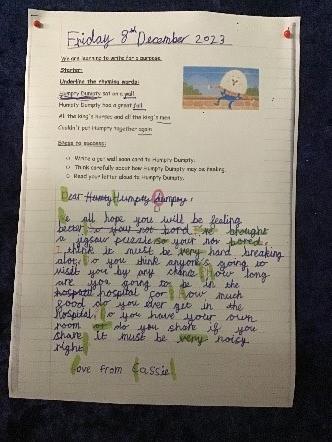 Friday 8th December 2023
We are learning to write for a purpose.
Starter:
Underline the rhyming words:
Humpty Dumpty sat on a wall
Humpty Dumpty had a great fall
All the king's horses and all the king's men
Couldn't put Humpty together again
Steps to success:
Write a get well soon card to Humpty Dumpty.
Think carefully about how Humpty Dumpty may be feeling.
Read your letter aloud to Humpty Dumpty.
Dear Humty Humpty Dumpty,
We all hope you will be feeling
better so your not bord. We brought
a jigsaw puzzle so your not bored.
I think it must be very hard breaking
alot. Do you think anyone's going to
visit you by any chance? How long
are you going to be in the
hospital hospital for? How much
food do you ever get in the
hospital. Do you have your own
room or do you share if you
share it must be very noisy
right.
Love from Cassie